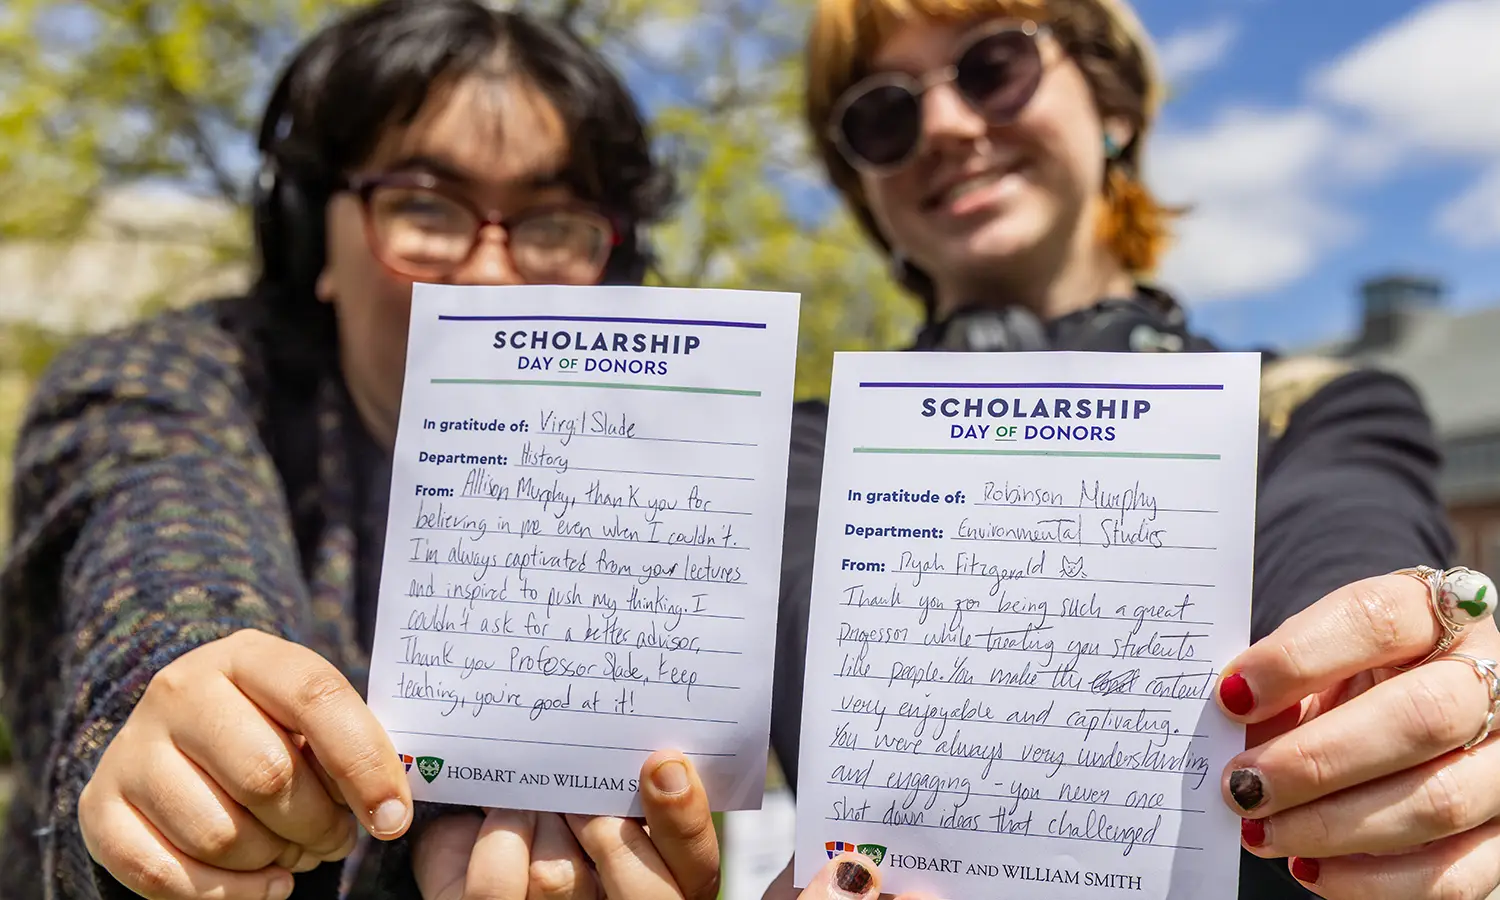 SCHOLARSHIP
DAY OF DONORS
In gratitude of: Virgil Slade
Department: History
From: Allison Murphy, thank you for
believing in me even when I couldn't.
I'm always captivated from your lectures
and inspired to push my thinking. I
couldn't ask for a better advisor,
Thank you Professor Slade, keep
teaching, you're good at it!
HOBART AND WILLIAM S
SCHOLARSHIP
DAY OF DONORS
In gratitude of: Robinson Murphy
Department: Environmental Studies
From: Ryah Fitzgerald
Thank you for being such a great
professor while treating you students
like people. You make the content
very enjoyable and captivating.
You were always very understanding
and engaging - you never once
shot down ideas that challenged
HOBART AND WILLIAM SMITH